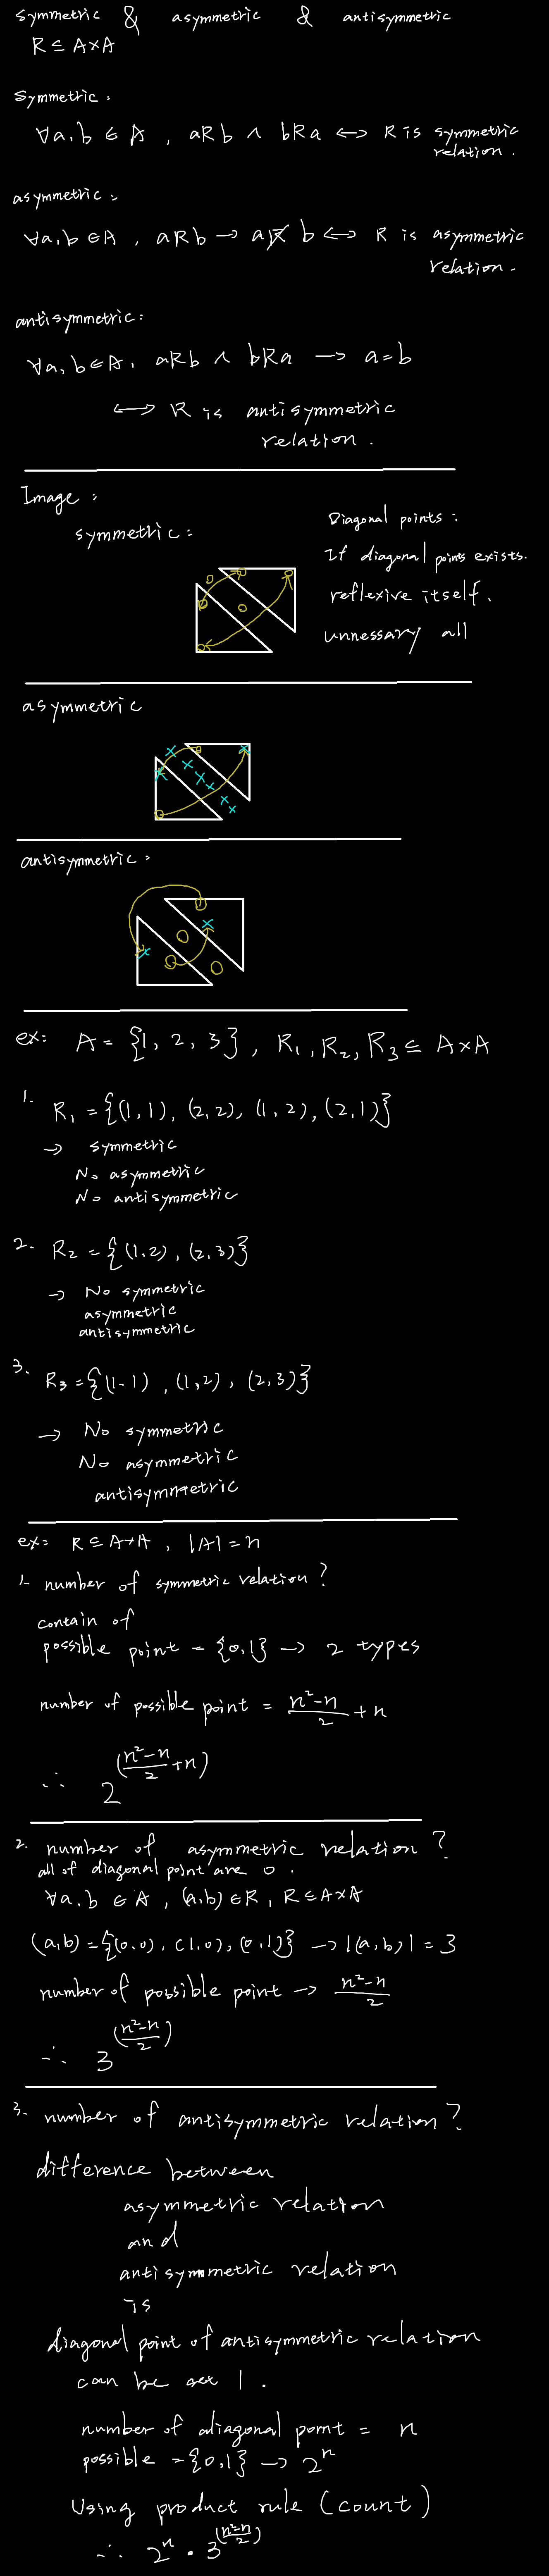 symmetric & asymmetric & antisymmetric
R ⊆ A×A
Symmetric :
∀a, b ∈ A , aRb ∧ bRa ↔ R is symmetric
relation .
asymmetric :
∀a, b ∈ A , aRb → aR̸b ↔ R is asymmetric
relation .
antisymmetric:
∀a, b ∈ A, aRb ∧ bRa → a=b
↔ R is antisymmetric
relation .
Image :
symmetric :
Diagonal points :
If diagonal points exists.
reflexive itself.
unnessary all
asymmetric
antisymmetric :
ex: A = {1, 2, 3} , R₁, R₂, R₃ ⊆ A×A
1. R₁ = {(1,1), (2,2), (1,2), (2,1)}
→ symmetric
No asymmetric
No antisymmetric
2. R₂ = {(1,2), (2,3)}
→ No symmetric
asymmetric
antisymmetric
3. R₃ = {(1-1) , (1,2) , (2,3)}
→ No symmetric
No asymmetric
antisymmetric
ex: R ⊆ A×A , |A| = n
1- number of symmetric relation ?
contain of
possible point = {0,1} → 2 types
number of possible point = (n²-n)/2 + n
∴ 2^((n²-n)/2 + n)
2. number of asymmetric relation ?
all of diagonal point are 0 .
∀a, b ∈ A , (a,b) ∈ R , R ⊆ A×A
(a,b) = {(0,0), (1,0), (0,1)} → |(a,b)| = 3
number of possible point → (n²-n)/2
∴ 3^((n²-n)/2)
3. number of antisymmetric relation ?
difference between
asymmetric relation
and
antisymmetric relation
is
diagonal point of antisymmetric relation
can be set 1 .
number of diagonal point = n
possible = {0,1} → 2ⁿ
Using product rule (count)
∴ 2ⁿ · 3^((n²-n)/2)